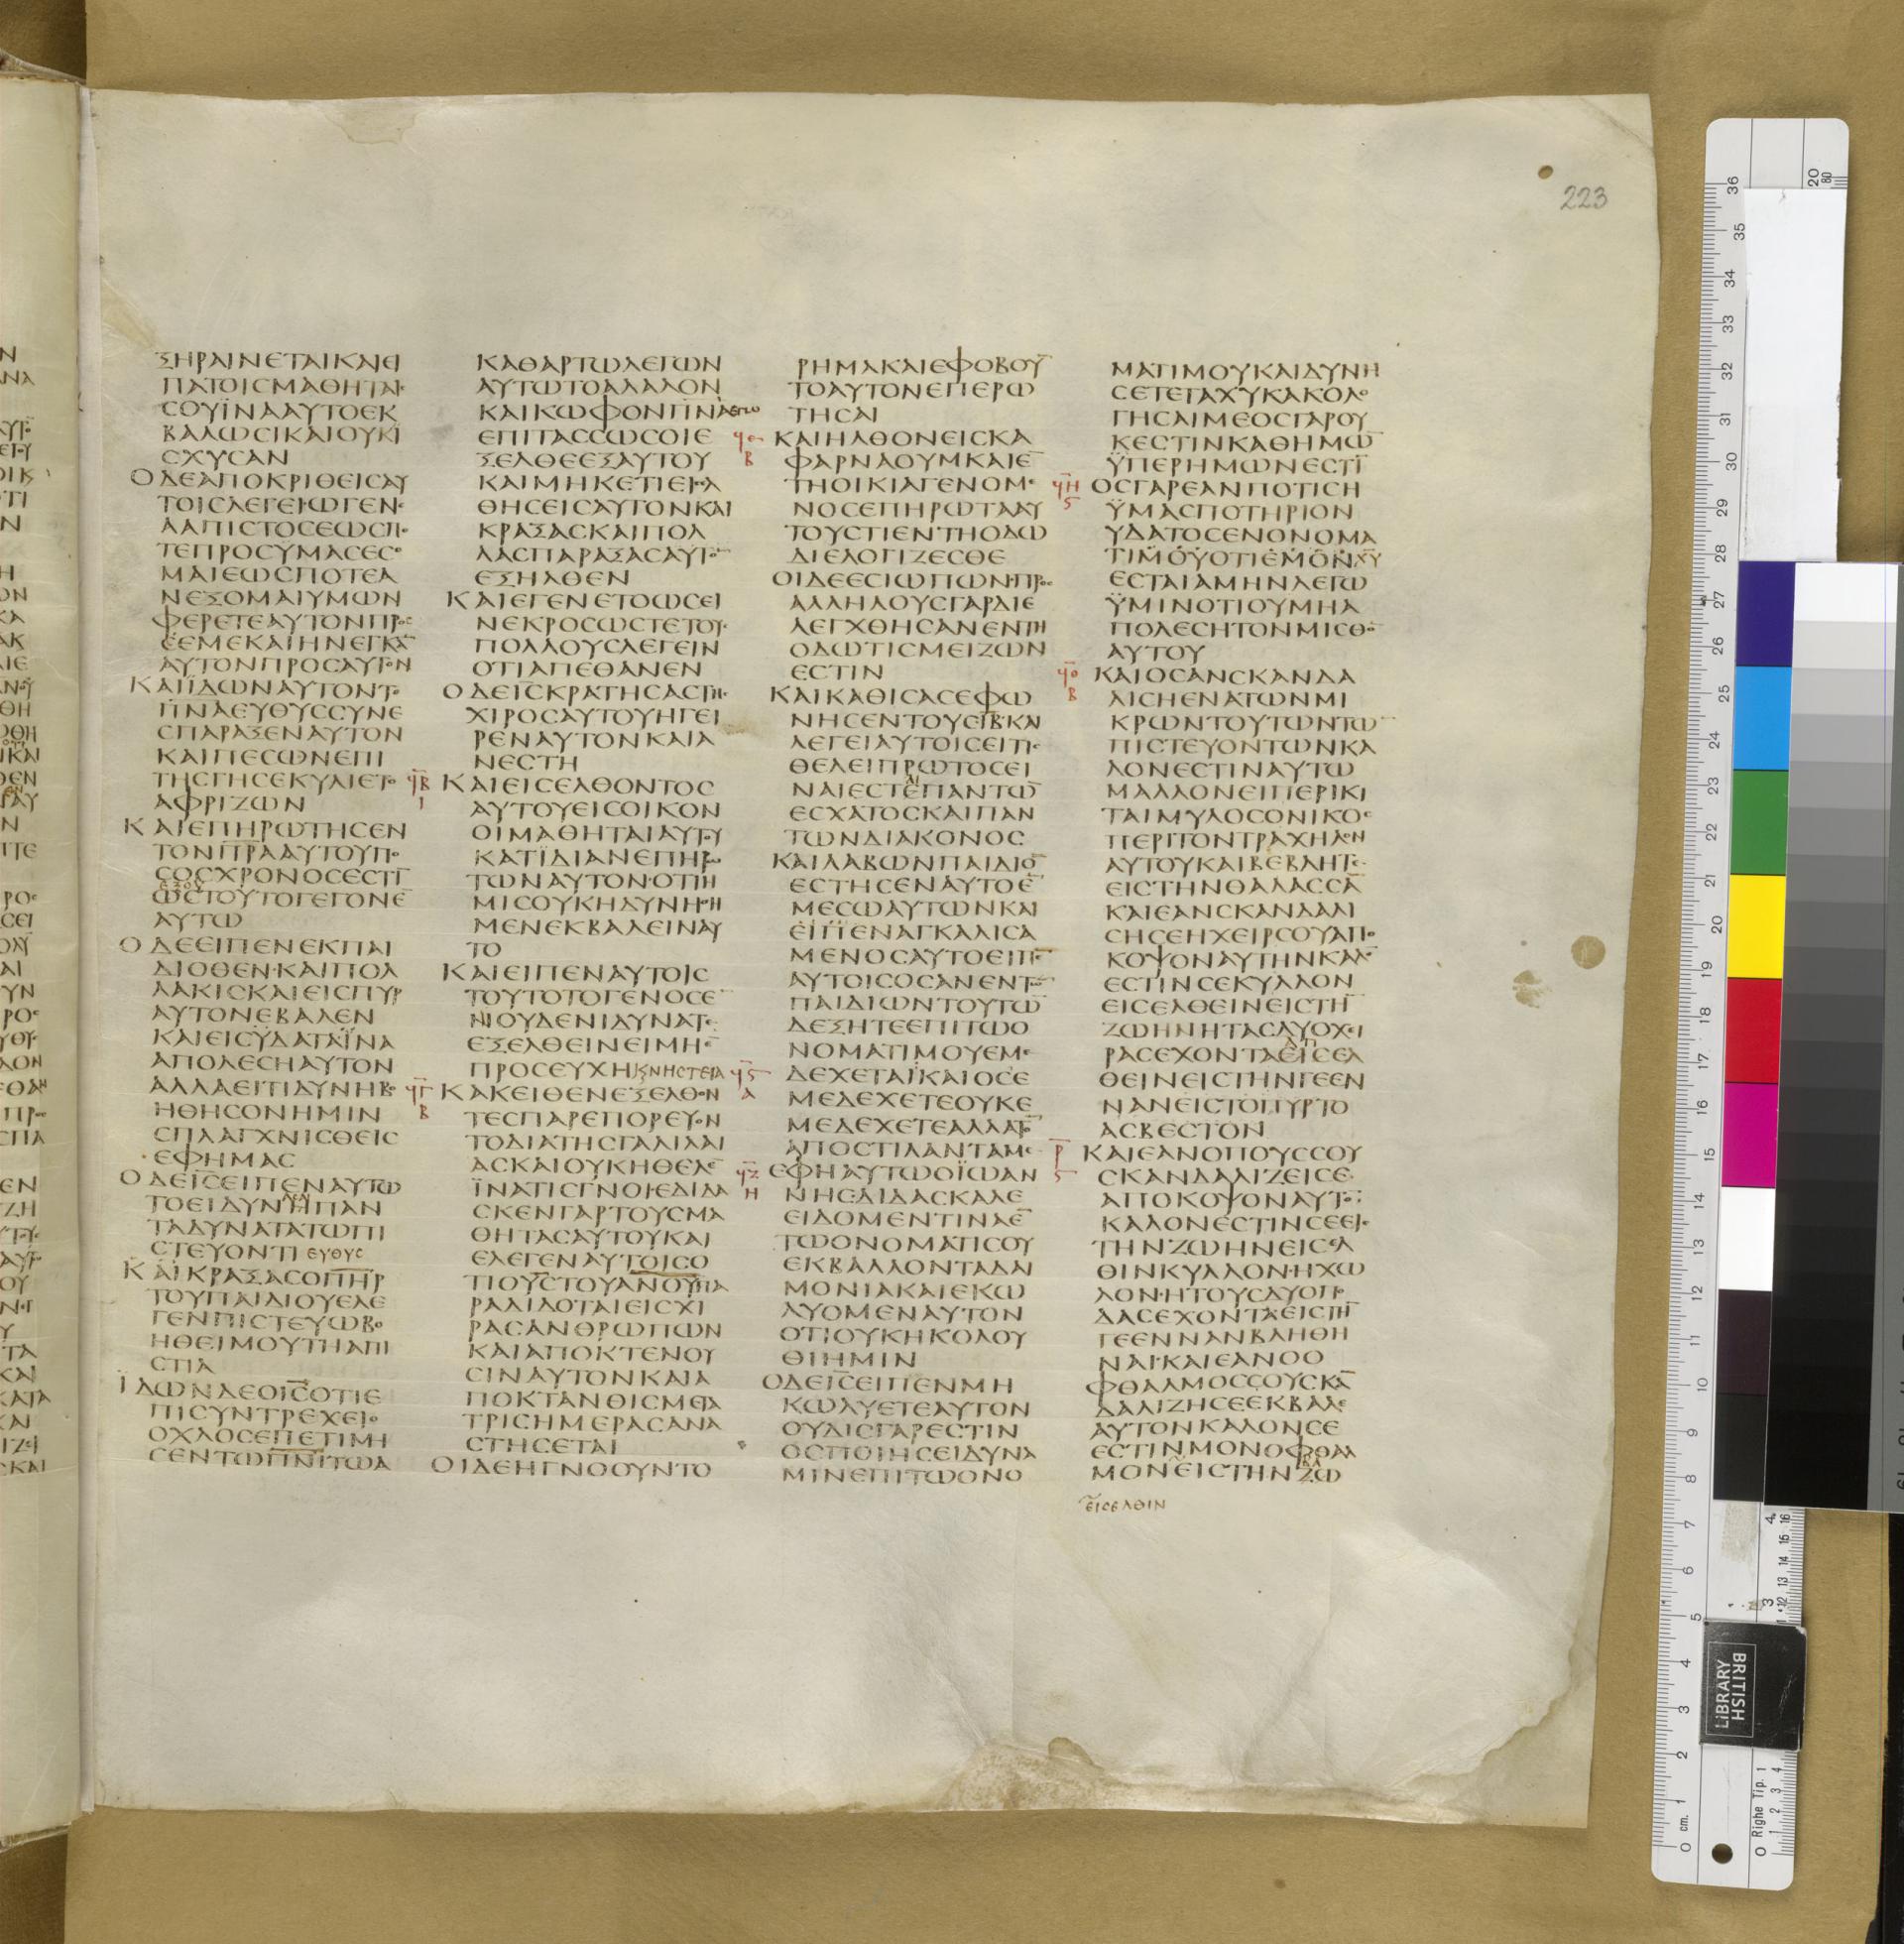 223
ΞΗΡΑΙΝΕΤΑΙΚΑΙΕΙ
ΠΑΤΟΙCΜΑΘΗΤΑΙ
CΟΥΪΝΑΑΥΤΟΕΚ
ΒΑΛΩCΙΚΑΙΟΥΚΙ
CΧΥCΑΝ
ΟΔΕΑΠΟΚΡΙΘΕΙCΑΥ
ΤΟΙCΛΕΓΕΙΩΓΕΝΕ
ΑΑΠΙCΤΟCΕΩCΠΟ
ΤΕΠΡΟCΥΜΑCΕCΟ
ΜΑΙΕΩCΠΟΤΕΑ
ΝΕΞΟΜΑΙΥΜΩΝ
ΦΕΡΕΤΕΑΥΤΟΝΠΡΟC
ΕΜΕΚΑΙΗΝΕΓΚΑ̅
ΑΥΤΟΝΠΡΟCΑΥΤΟΝ
ΚΑΙΪΔΩΝΑΥΤΟΝΤΟ
Π̅Ν̅ΑΕΥΘΥCCΥΝΕ
CΠΑΡΑΞΕΝΑΥΤΟΝ
ΚΑΙΠΕCΩΝΕΠΙ
ΤΗCΓΗCΕΚΥΛΙΕΤΟ
ΑΦΡΙΖΩΝ
ΚΑΙΕΠΗΡΩΤΗCΕΝ
ΤΟΝΠ̅Ρ̅Α̅ΑΥΤΟΥΠΟ
CΟCΧΡΟΝΟCΕCΤΙ̅
ΕΞΟΥ
ΩCΤΟΥΤΟΓΕΓΟΝΕ̅
ΑΥΤΩ
ΟΔΕΕΙΠΕΝΕΚΠΑΙ
ΔΙΟΘΕΝΚΑΙΠΟΛ
ΛΑΚΙCΚΑΙΕΙCΠΥΡ
ΑΥΤΟΝΕΒΑΛΕΝ
ΚΑΙΕΙCΫΔΑΤΑΪΝΑ
ΑΠΟΛΕCΗΑΥΤΟΝ
ΑΛΛΑΕΙΤΙΔΥΝΗΒΟ
ΗΘΗCΟΝΗΜΙΝ
CΠΛΑΓΧΝΙCΘΕΙC
ΕΦΗΜΑC
ΟΔΕΙ̅C̅ΕΙΠΕΝΑΥΤΩ
ΤΟΕΙΔΥΝΗΠΑΝ
ΤΑΔΥΝΑΤΑΤΩΠΙ
CΤΕΥΟΝΤΙ ΕΥΘΥC
ΚΑΙΚΡΑΞΑCΟΠ̅Η̅Ρ̅
ΤΟΥΠΑΙΔΙΟΥΕΛΕ
ΓΕΝΠΙCΤΕΥΩΒΟ
ΗΘΕΙΜΟΥΤΗΑΠΙ
CΤΙΑ
ΪΔΩΝΔΕΟΙ̅C̅ΟΤΙΕ
ΠΙCΥΝΤΡΕΧΕΙΟ
ΟΧΛΟCΕΠΕΤΙΜΗ
CΕΝΤΩΠ̅Ν̅Ι̅ΤΩΑ
ΚΑΘΑΡΤΩΛΕΓΩΝ
ΑΥΤΩΤΟΑΛΑΛΟΝ
ΚΑΙΚΩΦΟΝΠ̅Ν̅ΑΕΓΩ
ΕΠΙΤΑCCΩCΟΙΕ
ΞΕΛΘΕΕΞΑΥΤΟΥ
ΚΑΙΜΗΚΕΤΙΕΙCΕΛ
ΘΗCΕΙCΑΥΤΟΝΚΑΙ
ΚΡΑΞΑCΚΑΙΠΟΛ
ΛΑCΠΑΡΑΞΑCΑΥΤΟ̅
ΕΞΗΛΘΕΝ
ΚΑΙΕΓΕΝΕΤΟΩCΕΙ
ΝΕΚΡΟCΩCΤΕΤΟΥC
ΠΟΛΛΟΥCΛΕΓΕΙΝ
ΟΤΙΑΠΕΘΑΝΕΝ
ΟΔΕΙ̅C̅ΚΡΑΤΗCΑCΤΗC
ΧΙΡΟCΑΥΤΟΥΗΓΕΙ
ΡΕΝΑΥΤΟΝΚΑΙΑ
ΝΕCΤΗ
ϞΒ Ι
ΚΑΙΕΙCΕΛΘΟΝΤΟC
ΑΥΤΟΥΕΙCΟΙΚΟΝ
ΟΙΜΑΘΗΤΑΙΑΥΤΟΥ
ΚΑΤΪΔΙΑΝΕΠΗΡΩ
ΤΩΝΑΥΤΟΝΟΤΙΗ
ΜΙCΟΥΚΗΔΥΝΗΘΗ
ΜΕΝΕΚΒΑΛΕΙΝΑΥ
ΤΟ
ΚΑΙΕΙΠΕΝΑΥΤΟΙC
ΤΟΥΤΟΤΟΓΕΝΟCΕ̅
ΝΟΥΔΕΝΙΔΥΝΑΤΕ
ΕΞΕΛΘΕΙΝΕΙΜΗΕ̅
ΠΡΟCΕΥΧΗΚΝΗCΤΕΙΑ
ϞΓ Β
ΚΑΚΕΙΘΕΝΕΞΕΛΘΟΝ
ΤΕCΠΑΡΕΠΟΡΕΥΟΝ
ΤΟΔΙΑΤΗCΓΑΛΙΛΑΙ
ΑCΚΑΙΟΥΚΗΘΕΛΕ̅
ΪΝΑΤΙCΓΝΟΙΕΔΙΔΑ
CΚΕΝΓΑΡΤΟΥCΜΑ
ΘΗΤΑCΑΥΤΟΥΚΑΙ
ΕΛΕΓΕΝΑΥΤΟΙCΟ
Τ̅Ι̅ΟΥ̅C̅ΤΟΥΑ̅Ν̅Ο̅Υ̅ΠΑ
ΡΑΔΙΔΟΤΑΙΕΙCΧΙ
ΡΑCΑΝΘΡΩΠΩΝ
ΚΑΙΑΠΟΚΤΕΝΟΥ
CΙΝΑΥΤΟΝΚΑΙΑ
ΠΟΚΤΑΝΘΙCΜΕΤΑ
ΤΡΙCΗΜΕΡΑCΑΝΑ
CΤΗCΕΤΑΙ
ΟΙΔΕΗΓΝΟΟΥΝΤΟ
ΡΗΜΑΚΑΙΕΦΟΒΟΥ̅
ΤΟΑΥΤΟΝΕΠΕΡΩ
ΤΗCΑΙ
ΚΑΙΗΛΘΟΝΕΙCΚΑ
ΦΑΡΝΑΟΥΜΚΑΙΕ̅
ΤΗΟΙΚΙΑΓΕΝΟΜΕ
ΝΟCΕΠΗΡΩΤΑΑΥ
ΤΟΥCΤΙΕΝΤΗΟΔΩ
ΔΙΕΛΟΓΙΖΕCΘΕ
ΟΙΔΕΕCΙΩΠΩΝΠΡΟC
ΑΛΛΗΛΟΥCΓΑΡΔΙΕ
ΛΕΓΧΘΗCΑΝΕΝΤΗ
ΟΔΩΤΙCΜΕΙΖΩΝ
ΕCΤΙΝ
ΚΑΙΚΑΘΙCΑCΕΦΩ
ΝΗCΕΝΤΟΥCΙ̅Β̅ΚΑΙ
ΛΕΓΕΙΑΥΤΟΙCΕΙΤΙC
ΘΕΛΕΙΠΡΩΤΟCΕΙ
ΝΑΙΕCΤΕΠΑΝΤΩ̅
ΕCΧΑΤΟCΚΑΙΠΑΝ
ΤΩΝΔΙΑΚΟΝΟC
ΚΑΙΛΑΒΩΝΠΑΙΔΙΟ̅
ΕCΤΗCΕΝΑΥΤΟΕ̅
ΜΕCΩΑΥΤΩΝΚΑΙ
ΕΙΠΕΝΑΓΚΑΛΙCΑ
ΜΕΝΟCΑΥΤΟΕΙΠΕ̅
ΑΥΤΟΙCΟCΑΝΕΝΤΩ̅
ΠΑΙΔΙΩΝΤΟΥΤΩ̅
ΔΕΞΗΤΕΕΠΙΤΩΟ
ΝΟΜΑΤΙΜΟΥΕΜΕ
ϞϚ Α
ΔΕΧΕΤΑΪΚΑΙΟCΕ
ΜΕΔΕΧΕΤΕΟΥΚΕ
ΜΕΔΕΧΕΤΕΑΛΛΑΤΟ̅
ΑΠΟCΤΙΛΑΝΤΑΜΕ
ϞΖ Η
ΕΦΗΑΥΤΩΟΪΩΑΝ
ΝΗCΔΙΔΑCΚΑΛΕ
ΕΙΔΟΜΕΝΤΙΝΑΕ̅
ΤΩΟΝΟΜΑΤΙCΟΥ
ΕΚΒΑΛΛΟΝΤΑΔΑΙ
ΜΟΝΙΑΚΑΙΕΚΩ
ΛΥΟΜΕΝΑΥΤΟΝ
ΟΤΙΟΥΚΗΚΟΛΟΥ
ΘΙΗΜΙΝ
ΟΔΕΙ̅C̅ΕΙΠΕΝΜΗ
ΚΩΛΥΕΤΕΑΥΤΟΝ
ΟΥΔΙCΓΑΡΕCΤΙΝ
ΟCΠΟΙΗCΕΙΔΥΝΑ
ΜΙΝΕΠΙΤΩΟΝΟ
ΜΑΤΙΜΟΥΚΑΙΔΥΝΗ
CΕΤΕΤΑΧΥΚΑΚΟΛΟ
ΓΗCΑΙΜΕΟCΓΑΡΟΥ
ΚΕCΤΙΝΚΑΘΗΜΩ̅
ΫΠΕΡΗΜΩΝΕCΤΙ̅
ϞΗ Ϛ
ΟCΓΑΡΕΑΝΠΟΤΙCΗ
ΫΜΑCΠΟΤΗΡΙΟΝ
ΥΔΑΤΟCΕΝΟΝΟΜΑ
ΤΙΜΟΥΟΤΙΕΜΟΝΧΥ
ΕCΤΑΙΑΜΗΝΛΕΓΩ
ΫΜΙΝΟΤΙΟΥΜΗΑ
ΠΟΛΕCΗΤΟΝΜΙCΘΟ̅
ΑΥΤΟΥ
ΚΑΙΟCΑΝCΚΑΝΔΑ
ΛΙCΗΕΝΑΤΩΝΜΙ
ΚΡΩΝΤΟΥΤΩΝΤΩ̅
ΠΙCΤΕΥΟΝΤΩΝΚΑ
ΛΟΝΕCΤΙΝΑΥΤΩ
ΜΑΛΛΟΝΕΙΠΕΡΙΚΙ
ΤΑΙΜΥΛΟCΟΝΙΚΟC
ΠΕΡΙΤΟΝΤΡΑΧΗΛΟΝ
ΑΥΤΟΥΚΑΙΒΕΒΛΗΤΕ
ΕΙCΤΗΝΘΑΛΑCCΑ̅
ΚΑΙΕΑΝCΚΑΝΔΑΛΙ
CΗCΕΗΧΕΙΡCΟΥΑΠΟ
ΚΟΨΟΝΑΥΤΗΝΚΑΛΟ̅
ΕCΤΙΝCΕΚΥΛΛΟΝ
ΕΙCΕΛΘΕΙΝΕΙCΤΗ̅
ΖΩΗΝΗΤΑCΔΥΟΧΕΙ
ΡΑCΕΧΟΝΤΑΕΙCΕΛ
ΘΕΙΝΕΙCΤΗΝΓΕΕΝ
ΝΑΝΕΙCΤΟΠΥΡΤΟ
ΑCΒΕCΤΟΝ
Ρ Ϛ
ΚΑΙΕΑΝΟΠΟΥCCΟΥ
CΚΑΝΔΑΛΙΖΕΙCΕ
ΑΠΟΚΟΨΟΝΑΥΤΟ̅
ΚΑΛΟΝΕCΤΙΝCΕΕΙC
ΤΗΝΖΩΗΝΕΙCΕΛ
ΘΙΝΚΥΛΛΟΝΗΧΩ
ΛΟΝΗΤΟΥCΔΥΟΠΟ
ΔΑCΕΧΟΝΤΑΕΙCΤΗ̅
ΓΕΕΝΝΑΝΒΛΗΘΗ
ΝΑΙΚΑΙΕΑΝΟΟ
ΦΘΑΛΜΟCCΟΥCΚΑ̅
ΔΑΛΙΖΗCΕΕΚΒΑΛΕ
ΑΥΤΟΝΚΑΛΟΝCΕ
ΕCΤΙΝΜΟΝΟΦΘΑΛ
ΜΟΝΕΙCΤΗΝΖΩ
ΕΙCΕΛΘΙΝ
BRITISH
LIBRARY
0 cm. 1
0 Righe Tip. 1